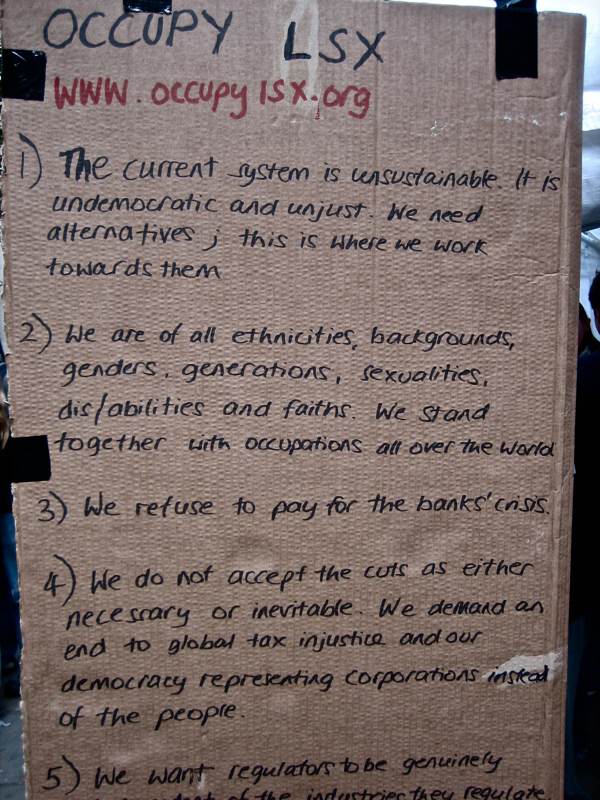 OCCUPY LSX
WWW.occupylsx.org
1) The current system is unsustainable. It is
undemocratic and unjust. We need
alternatives; this is where we work
towards them
2) We are of all ethnicities, backgrounds,
genders, generations, sexualities,
dis/abilities and faiths. We stand
together with occupations all over the world
3) We refuse to pay for the banks' crisis.
4) We do not accept the cuts as either
necessary or inevitable. We demand an
end to global tax injustice and our
democracy representing corporations instead
of the people.
5) We want regulators to be genuinely
of the industries they regulate